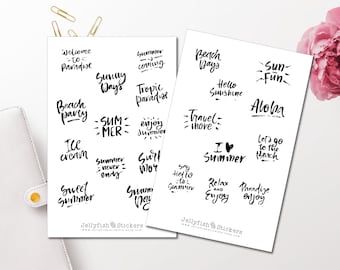 Welcome
to
Paradise
Summer
is
coming
Sunny
Days
Tropic
paradise
Beach
party
SUM
MER
enjoy
Summer
Ice
cream
Summer
never
ends
Surf
more
Sweet
Summer
Summer
Days
Jellyfish Stickers
Beach
Days
Sun
Fun
Hello
Sunshine
Aloha
Travel
more
I
Summer
Let's go
to the
Beach
Say
Hello
to
Summer
Relax
and
Enjoy
Paradise
enjoy
Jellyfish Stickers